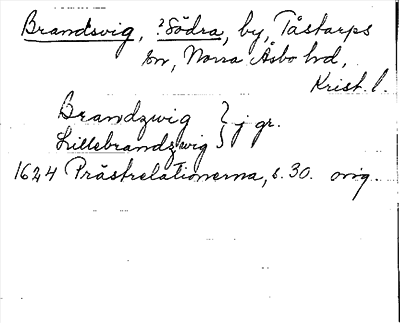 Brandsvig, ?Södra, by, Tåstarps
sn, Norra Åsbo hd,
Krist. l.
Brandzwig } j gr.
Lillebrandzwig
1624 Prästrelationerna, s. 30. orig.